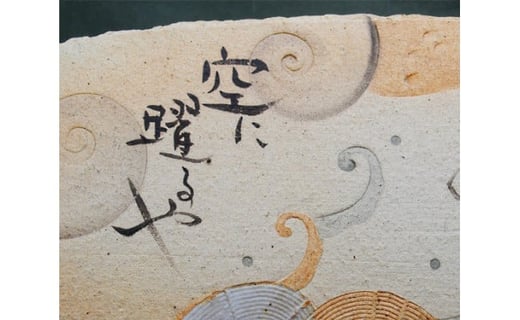 空に
躍るや